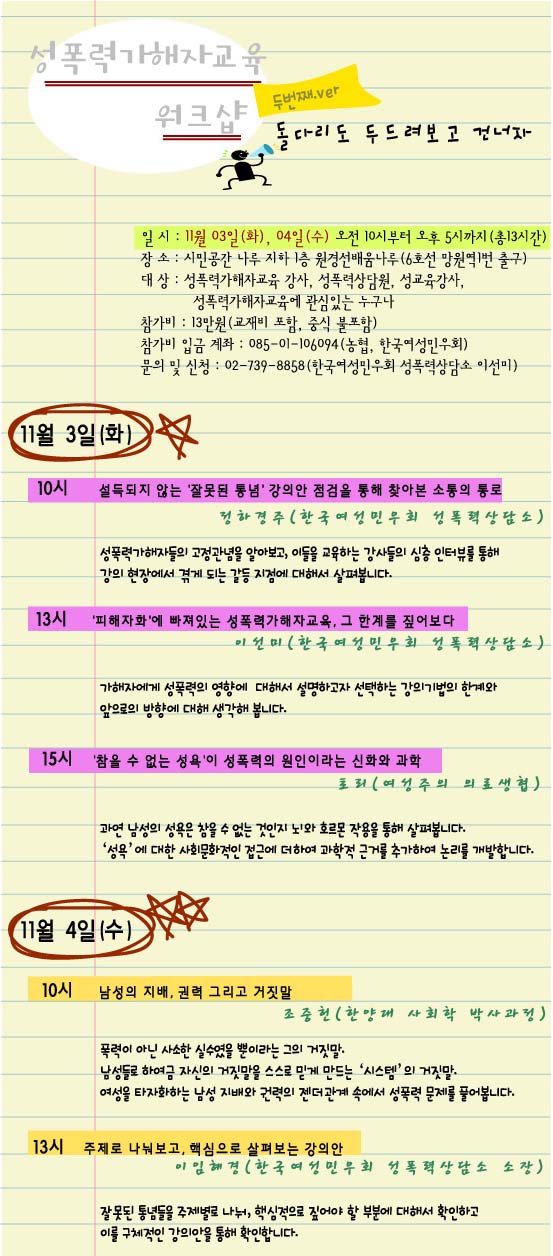 성폭력가해자교육
워크샵
두번째.ver
돌다리도 두드려보고 건너자
일 시 : 11월 03일(화), 04일(수) 오전 10시부터 오후 5시까지(총13시간)
장 소 : 시민공간 나루 지하 1층 원경선배움나루(6호선 망원역1번 출구)
대 상 : 성폭력가해자교육 강사, 성폭력상담원, 성교육강사,
성폭력가해자교육에 관심있는 누구나
참가비 : 13만원(교재비 포함, 중식 불포함)
참가비 입금 계좌 : 085-01-106094(농협, 한국여성민우회)
문의 및 신청 : 02-739-8858(한국여성민우회 성폭력상담소 이선미)
11월 3일(화)
10시 설득되지 않는 '잘못된 통념' 강의안 점검을 통해 찾아본 소통의 통로
정하경주(한국여성민우회 성폭력상담소)
성폭력가해자들의 고정관념을 알아보고, 이들을 교육하는 강사들의 심층 인터뷰를 통해
강의 현장에서 겪게 되는 갈등 지점에 대해서 살펴봅니다.
13시 '피해자화'에 빠져있는 성폭력가해자교육, 그 한계를 짚어보다
이선미(한국여성민우회 성폭력상담소)
가해자에게 성폭력의 영향에 대해서 설명하고자 선택하는 강의기법의 한계와
앞으로의 방향에 대해 생각해 봅니다.
15시 '참을 수 없는 성욕'이 성폭력의 원인이라는 신화와 과학
토리(여성주의 의료생협)
과연 남성의 성욕은 참을 수 없는 것인지 뇌와 호르몬 작용을 통해 살펴봅니다.
‘성욕’에 대한 사회문화적인 접근에 더하여 과학적 근거를 추가하여 논리를 개발합니다.
11월 4일(수)
10시 남성의 지배, 권력 그리고 거짓말
조중헌(한양대 사회학 박사과정)
폭력이 아닌 사소한 실수였을 뿐이라는 그의 거짓말.
남성들로 하여금 자신의 거짓말을 스스로 믿게 만드는 ‘시스템’의 거짓말.
여성을 타자화하는 남성 지배와 권력의 젠더관계 속에서 성폭력 문제를 풀어봅니다.
13시 주제로 나눠보고, 핵심으로 살펴보는 강의안
이임혜경(한국여성민우회 성폭력상담소 소장)
잘못된 통념들을 주제별로 나눠, 핵심적으로 짚어야 할 부분에 대해서 확인하고
이를 구체적인 강의안을 통해 확인합니다.